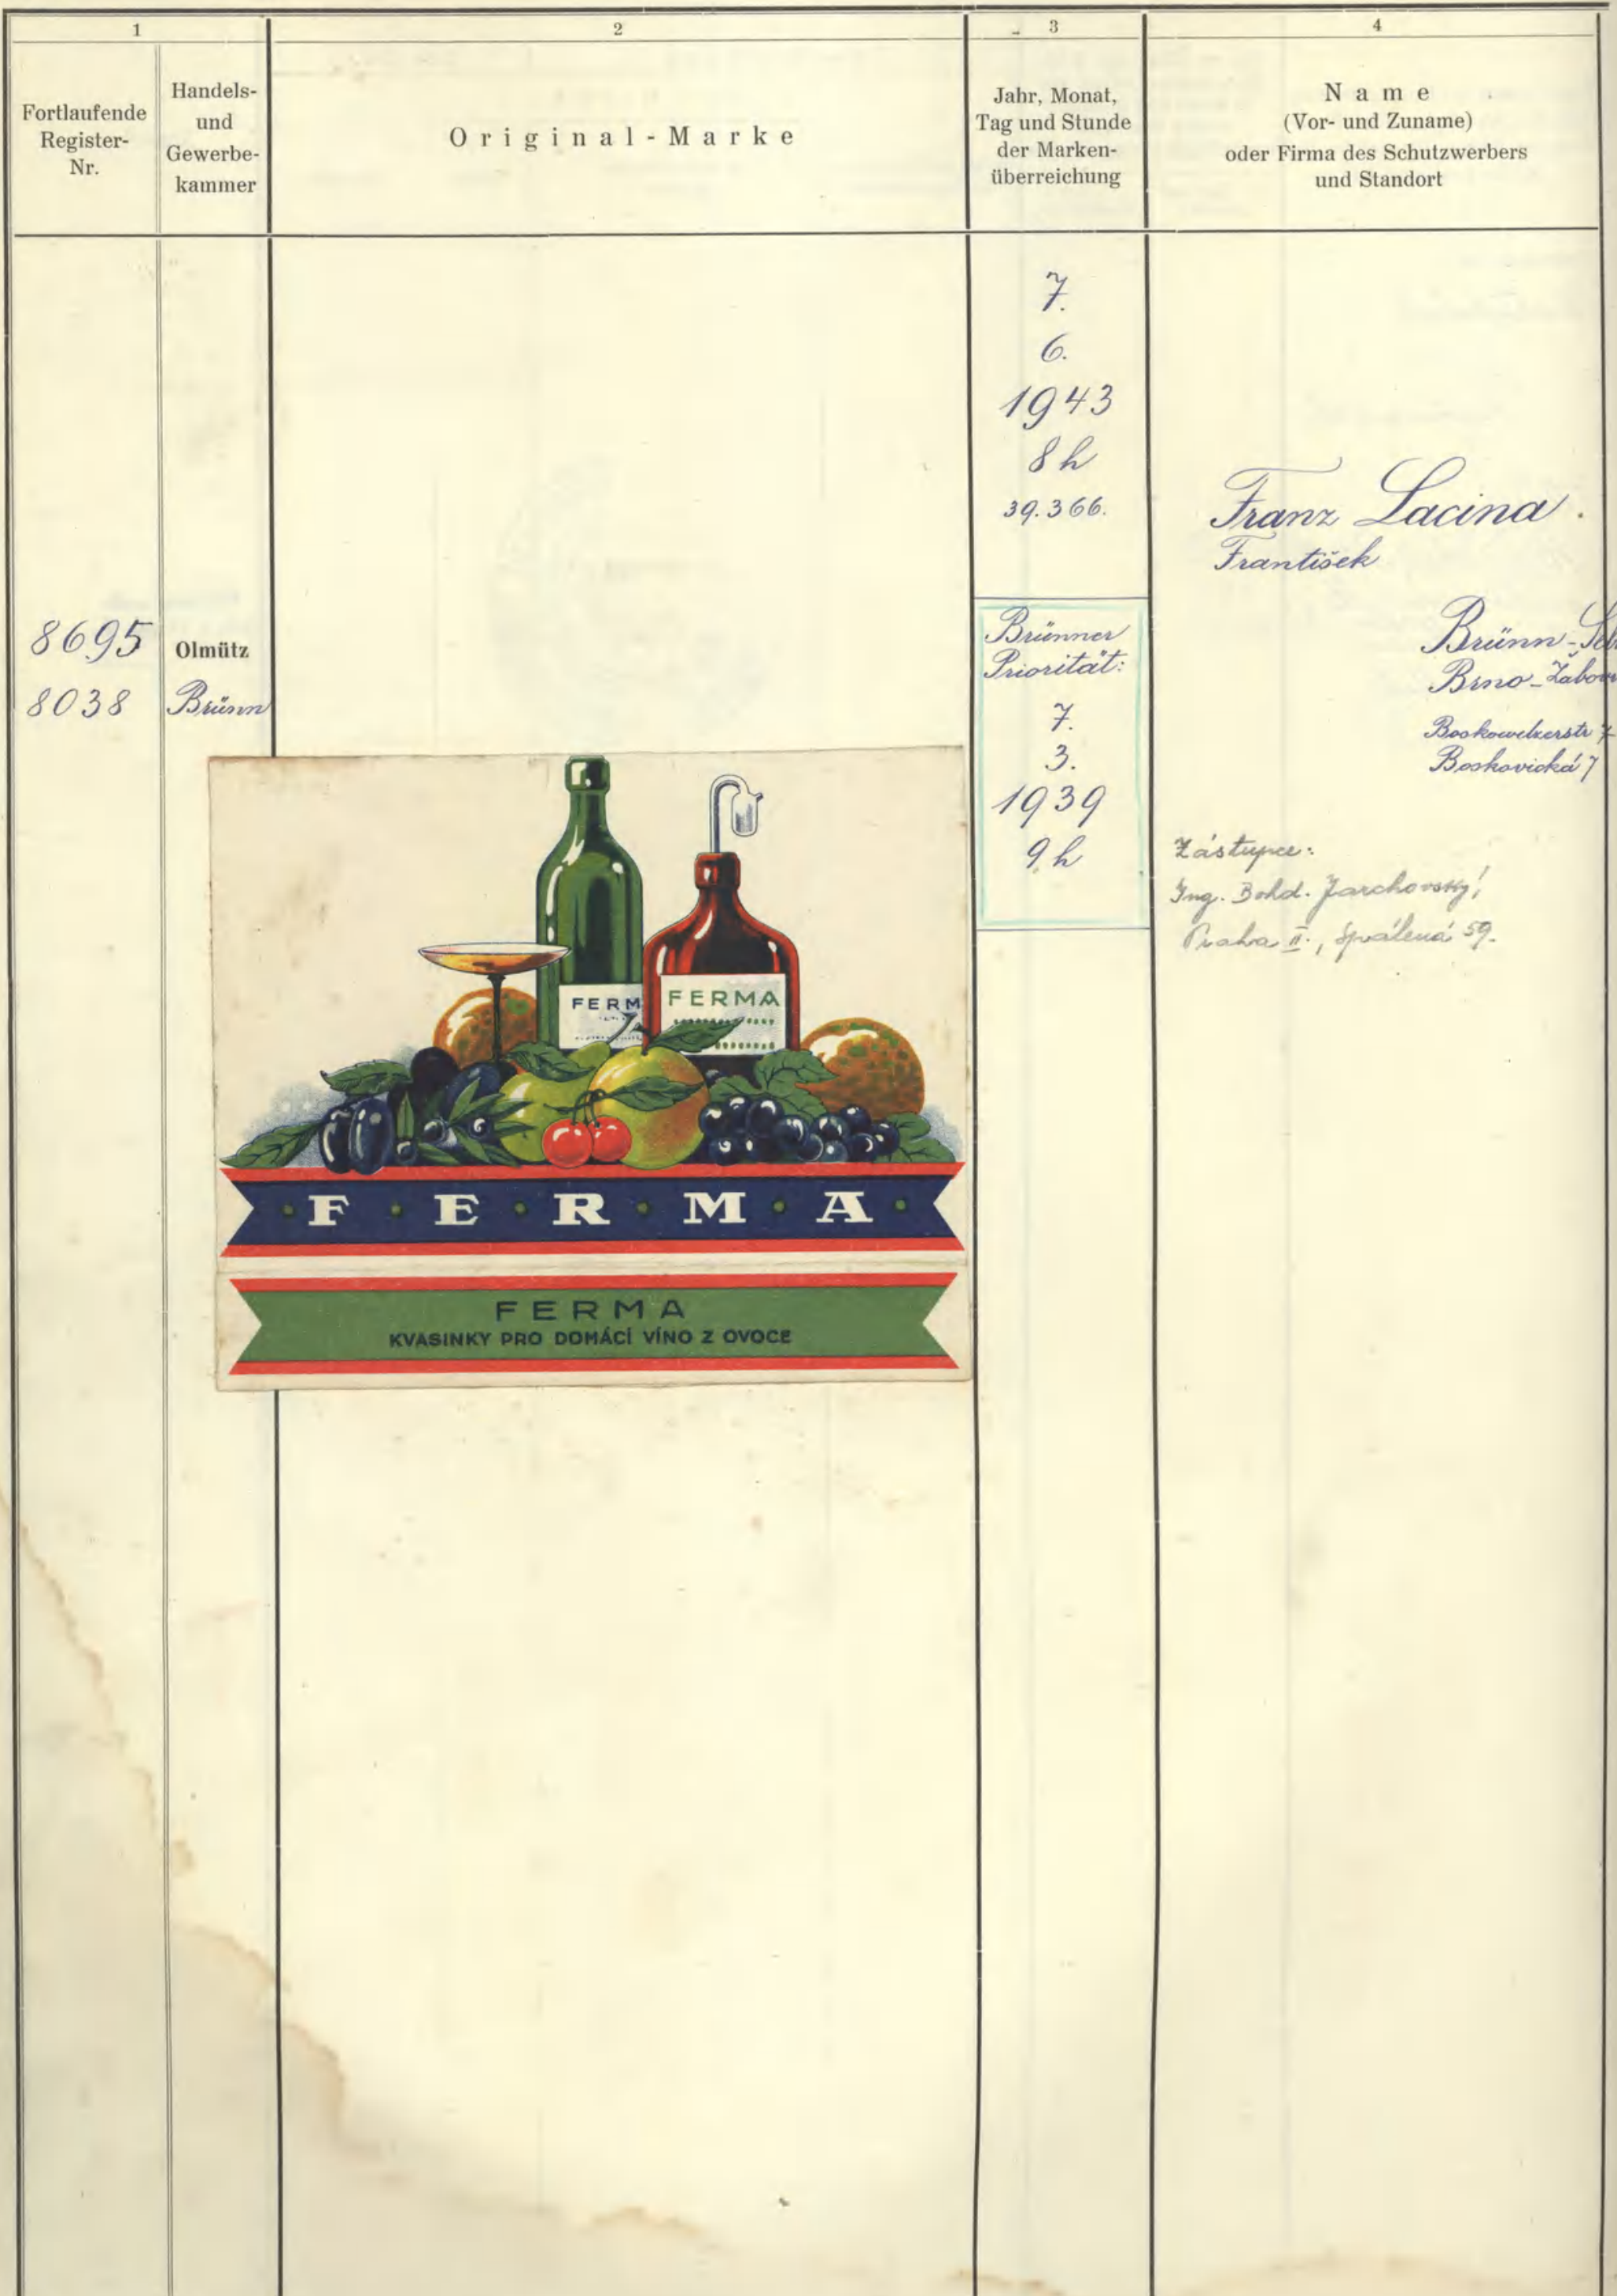 1
2
3
4
Fortlaufende
Register-
Nr.
Handels-
und
Gewerbe-
kammer
Original-Marke
Jahr, Monat,
Tag und Stunde
der Marken-
überreichung
Name
(Vor- und Zuname)
oder Firma des Schutzwerbers
und Standort
8695 Olmütz
8038 Brünn
FERM
FERMA
F·E·R·M·A
FERMA
KVASINKY PRO DOMÁCÍ VÍNO Z OVOCE
7.
6.
1943
8 h
39.366.
Brünner
Priorität:
7.
3.
1939
9 h
Franz Lacina.
František
Brünn-
Brno-Žabov
Boskowitzerstr 7
Boskovická 7
Zástupce:
Ing. Bohd. Jarchovský,
Praha II., Spálená 59.